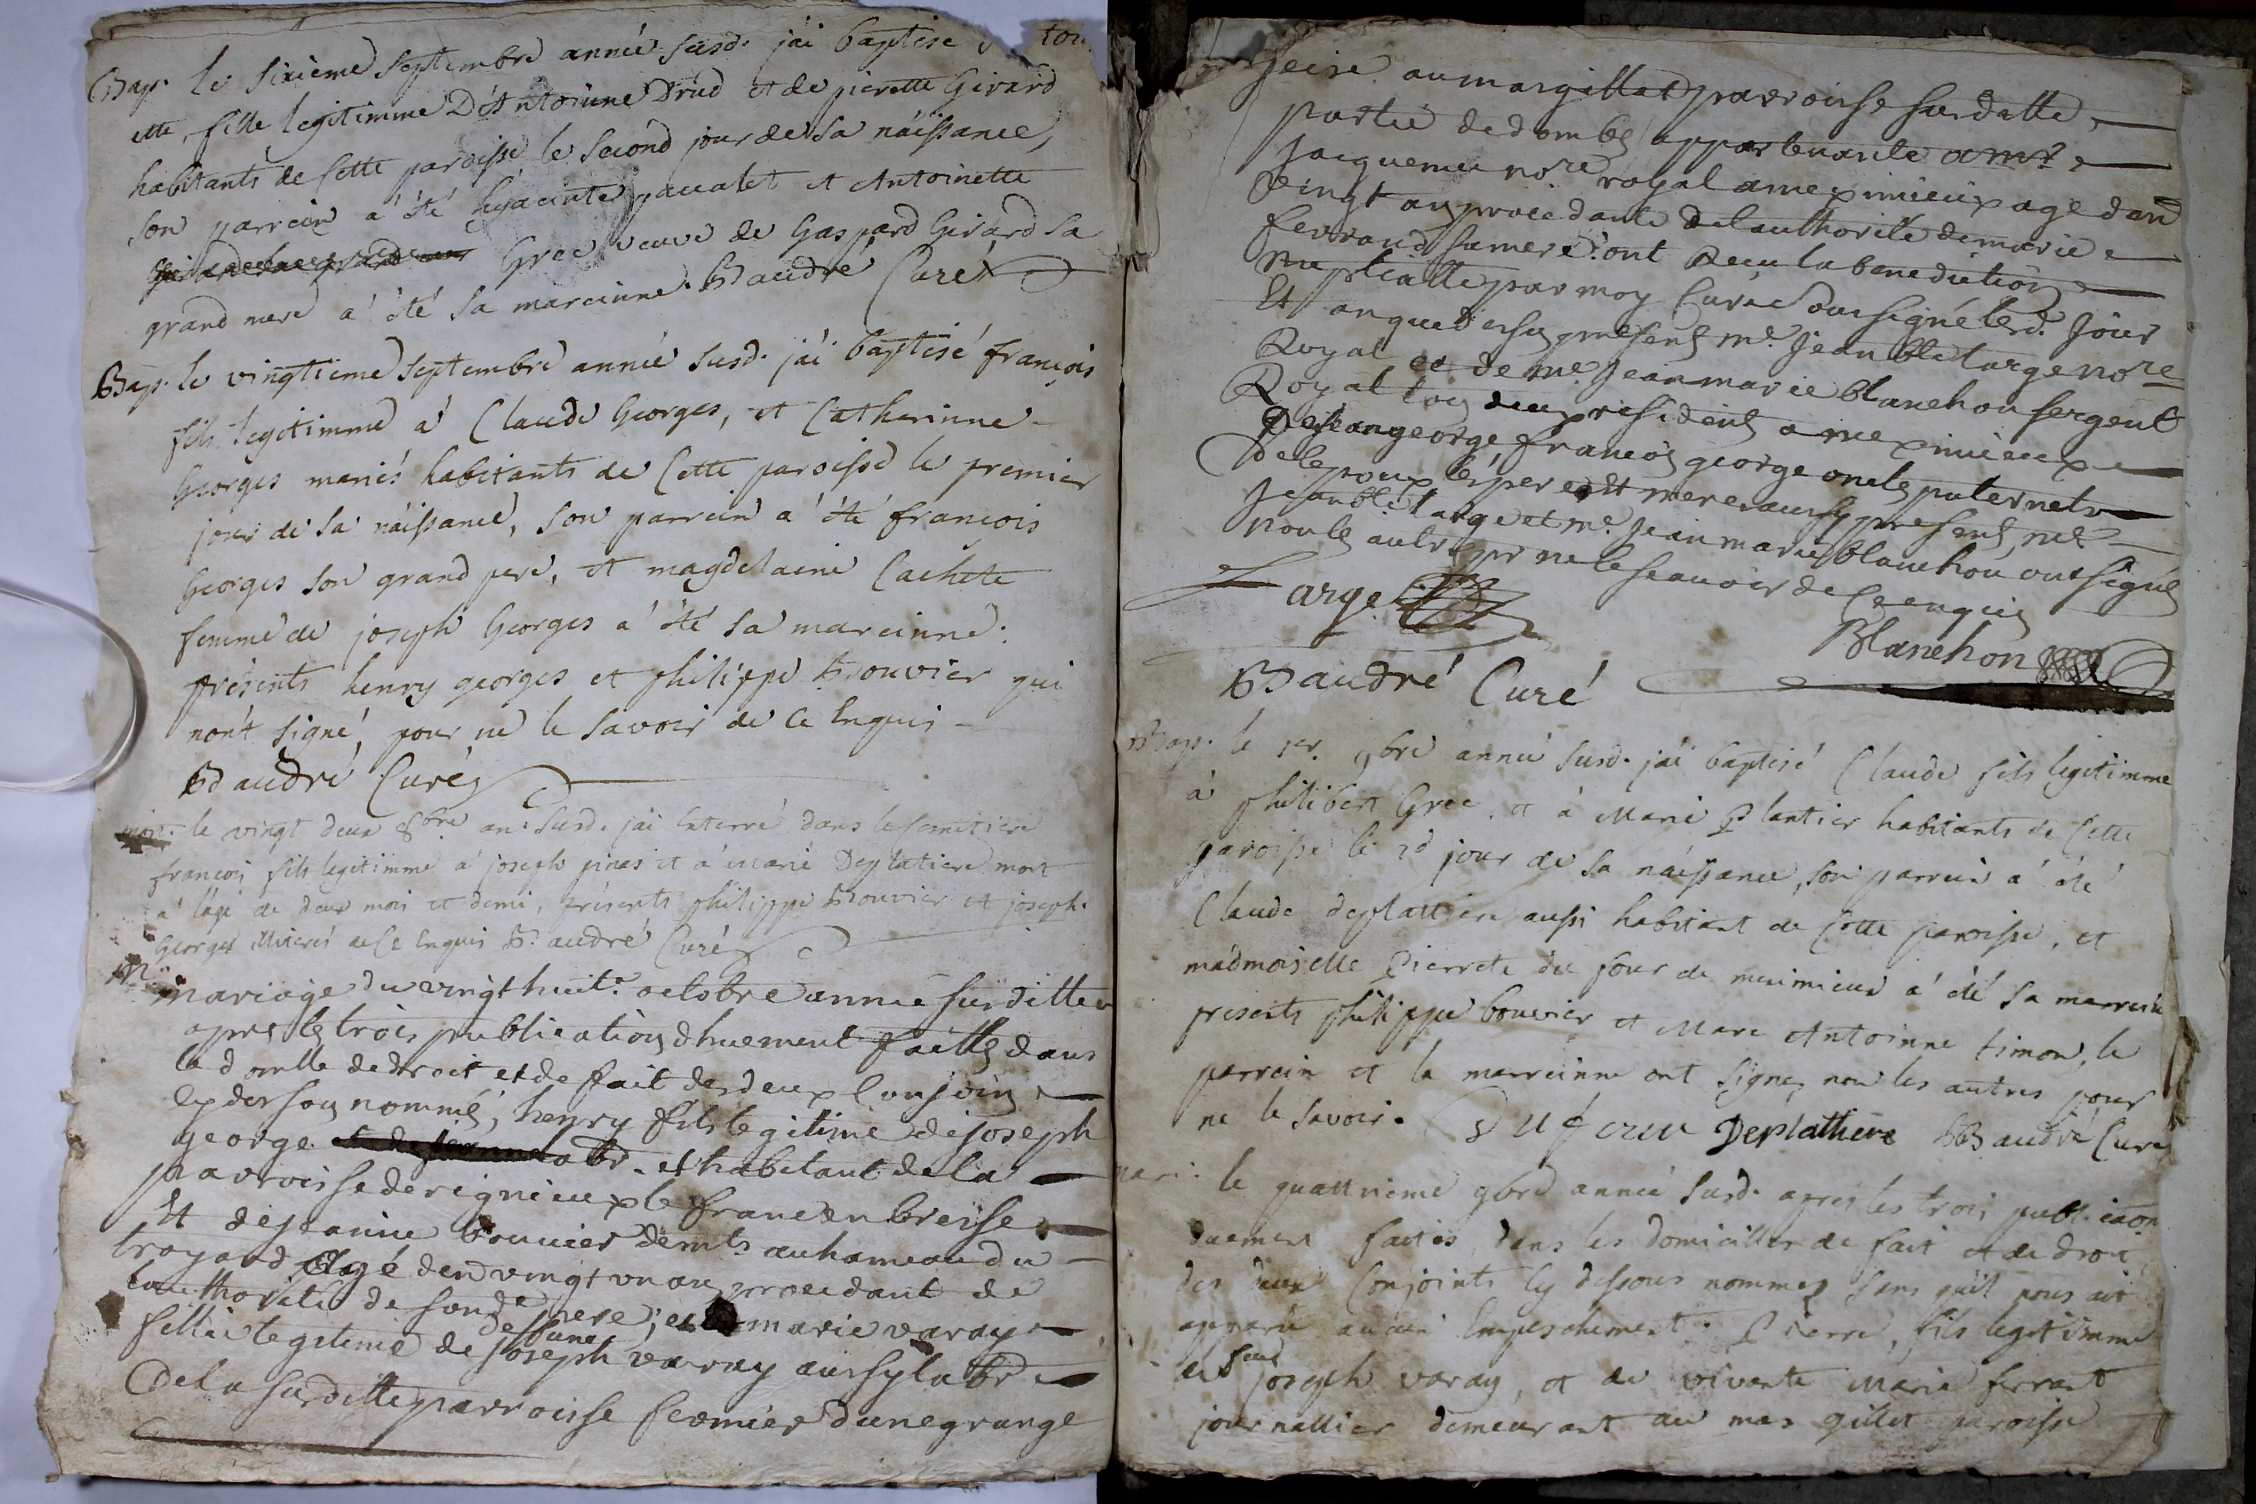 Bap. le sixieme septembre année susd. jái baptisé
ette, fille legitimme D'Antoinne Drud et de pierette Girard
habitants de Cette paroisse le second jour de sa náissance,
son parrein a été hyacinte pacalet et Antoinette
Grec veuve de Gaspard Girard sa
grand mere a' été sa mareinne. B andré Curé
Bap. le vingtieme septembre année susd. jái baptisé françois
fils legitimme á Claude Georges, et Catherinne
Georges mariés habitants de Cette paroisse le premier
jour de sa náissance, son parrein a' été françois
Georges son grand pere, et magdelaine Cachete
femme de joseph Georges a' été sa mareinne.
présents henry georges et philippe Bouvier qui
nont signé, pour ne le savoir de ce Enquis
B andré Curé
mor. le vingt deux 8bre an. susd. jai Enterré dans le semetiere
francois fils legitimme a' joseph et a' marie Deplatiere mort
a' l'age de deux mois et demi, présents philippe Bouvier et joseph
Georges illiterés de Ce Enquis B. andré Curé
M mariage du vingt huit.e octobre année surditte
apres les trois publications dhuement faittes dans
le domlle de droit et de fait des deux Conjoins
cy dessous nommés, henry fils legitime de joseph
george labr. et habitant de la
parroisse de rignieux le franc en bresse
Et de jeanne bouvier demts. au hameau du
troyard agé denv vingt un an procedant de
lauthorité de sond.e pere; et marie varay
fillie legitime de defunc joseph varay aussy labr
De la surditte parroisse fermier dune grange
seize au masgillet parroisse surditte
partie de dombes appartenante a mr.
jacquemet nore royal a meximieux age den
vingt an procedante de lauthorité de marie
ferrand sa mere: ont Reçu la benediction
nuptialle par moy Curé soussigné led. jour
Et an que dessus presents me. jean bte large nore
Royal et de me. jean marie blanchon sergent
Royal tous deux residents a meximieux
De jean george, francois george oncles paternels
De lepoux les pere et mere aussy presents, me
jean bte large et me. jean marie blanchon ont signés
non les autres pr ne le scavoir de Ce enquis
Large
Blanchon
B andré Curé
Bap. le 1er. 9bre année susd. jái baptisé Claude fils legitimme
a' philibert Grec, et á Marie Plantier habitants de Cette
paroisse le 2d jour de sa náissance, son parrein a' été
Claude deplattiere aussi habitant de Cette paroisse, et
mádmoiselle Pierrete du four de meximieux a' été sa marreine
presents philippe bouvier et Marc Antoinne timon, le
parrein et la marreinne ont signé, non les autres pour
ne le savoir. Dufour Deplathiere B andré Curé
mari. le quattrieme 9bre année susd. après les trois publicaon
duement faites dans les domicilles de fait et de droit,
des deux Conjoints Cy dessous nommes sans quil nous ait
apparu aucun Empeschement. Pierre, fils legitimme
de feu joseph varay, et de vivante Marie ferrant
journallier demeurant au mas gillet paroisse